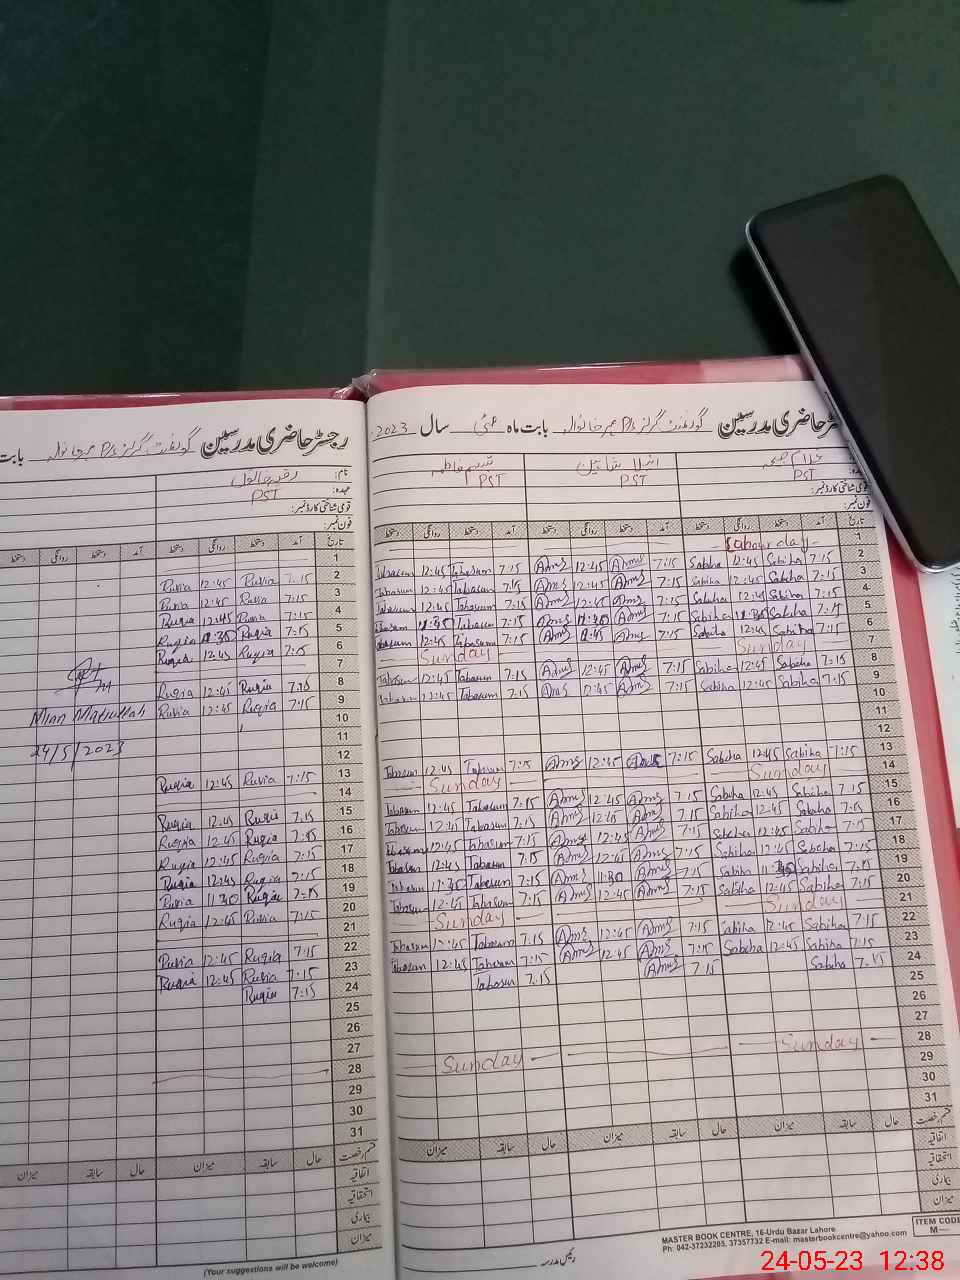 رجسٹر حاضری مدرسین گورنمنٹ گرلز P/S بابت
نام:
عہدہ: PST
قومی شناختی کارڈ نمبر:
فون نمبر:
تاریخ آمد دستخط روانگی دستخط آمد دستخط روانگی دستخط
1
2 7:15 Ruvia 12:45 Ruvia
3 7:15 Ruvia 12:45 Ruvia
4 7:15 Ruvia 12:45 Ruqia
5 7:15 Ruqia 11:30 Ruqia
6 7:15 Ruqia 12:45 Ruqia
7
8 7:15 Ruqia 12:45 Ruqia
9 7:15 Ruqia 12:45 Ruvia
Mian Matiullah
10
11
24/5/2023
12
13 7:15 Ruvia 12:45 Ruqia
14
15 7:15 Ruqia 12:45 Ruqia
16 7:15 Ruqia 12:45 Ruqia
17 7:15 Ruqia 12:45 Ruqia
18 7:15 Ruqia 12:45 Ruqia
19 7:15 Ruqia 11:30 Ruvia
20 7:15 Ruvia 12:45 Ruqia
21
22 7:15 Ruqia 12:45 Ruvia
23 7:15 Ruvia 12:45 Ruqia
24 7:15 Ruqia
25
26
27
28
29
30
31
قسم رخصت حال سابقہ میزان حال سابقہ میزان
اتفاقیہ
استحقاقیہ
بیماری
میزان
(Your suggestions will be welcome)
رجسٹر حاضری مدرسین گورنمنٹ گرلز P/S بابت ماہ مئی سال 2023
PST PST PST
قومی شناختی کارڈ نمبر:
فون نمبر:
تاریخ آمد دستخط روانگی دستخط آمد دستخط روانگی دستخط آمد دستخط روانگی دستخط
1 Labour day
2 7:15 Sabiha 12:45 Sabiha 7:15 12:45 7:15 Tabasum 12:45 Tabasum
3 7:15 Sabiha 12:45 Sabiha 7:15 12:45 7:15 Tabasum 12:45 Tabasum
4 7:15 Sabiha 12:45 Sabiha 7:15 12:45 7:15 Tabasum 12:45 Tabasum
5 7:15 Sabiha 11:30 Sabiha 7:15 11:30 7:15 Tabasum Tabasum
6 7:15 Sabiha 12:45 Sabiha 7:15 12:45 7:15 Tabasum 12:45 Tabasum
7 Sunday Sunday
8 7:15 Sabiha 12:45 Sabiha 7:15 12:45 7:15 Tabasum 12:45 Tabasum
9 7:15 Sabiha 12:45 Sabiha 7:15 12:45 7:15 Tabasum 12:45 Tabasum
10
11
12
13 7:15 Sabiha 12:45 Sabiha 7:15 12:45 7:15 Tabasum 12:45 Tabasum
14 Sunday Sunday
15 7:15 Sabiha 12:45 Sabiha 7:15 12:45 7:15 Tabasum 12:45 Tabasum
16 7:15 Sabiha 12:45 Sabiha 7:15 12:45 7:15 Tabasum 12:45 Tabasum
17 7:15 Sabiha 12:45 Sabiha 7:15 12:45 7:15 Tabasum 12:45 Tabasum
18 7:15 Sabiha 12:45 Sabiha 7:15 12:45 7:15 Tabasum 12:45 Tabasum
19 7:15 Sabiha 11:30 Sabiha 7:15 11:30 7:15 Tabasum 11:30 Tabasum
20 7:15 Sabiha 12:45 Sabiha 7:15 12:45 7:15 Tabasum 12:45 Tabasum
21 Sunday Sunday
22 7:15 Sabiha 12:45 Sabiha 7:15 12:45 7:15 Tabasum 12:45 Tabasum
23 7:15 Sabiha 12:45 Sabiha 7:15 12:45 7:15 Tabasum 12:45 Tabasum
24 7:15 Sabiha 7:15 7:15 Tabasum
25
26
27
28 Sunday Sunday
29
30
31
قسم رخصت حال سابقہ میزان حال سابقہ میزان
اتفاقیہ
استحقاقیہ
بیماری
میزان
رئیس مدرسہ
MASTER BOOK CENTRE, 16-Urdu Bazar Lahore
Ph: 042-37232265, 37357732 E-mail: masterbookcentre@yahoo.com
ITEM CODE
M—
24-05-23 12:38